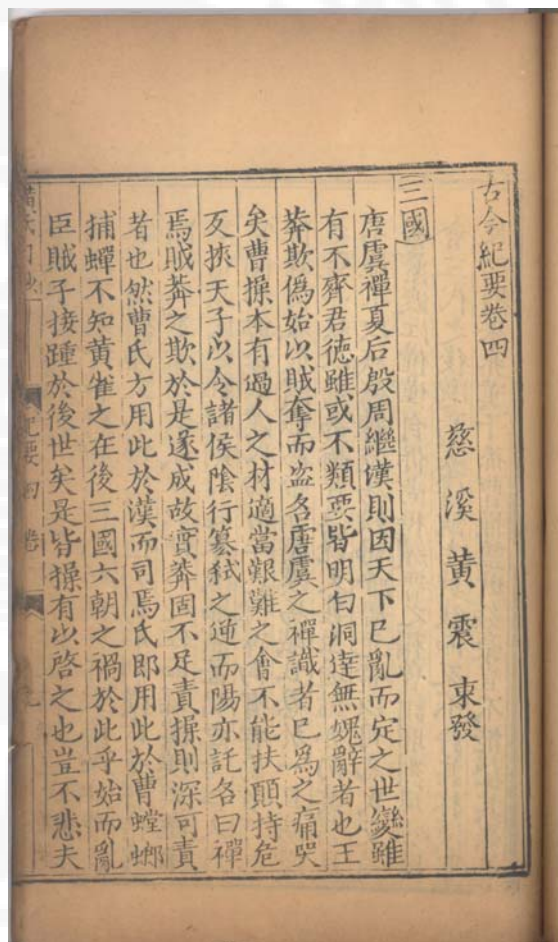 古今紀要卷四
慈溪黄震東發
三國
唐虞禪夏后殷周繼漢則因天下已亂而定之世變雖
有不齊君德雖或不類要皆明白洞達無媿辭者也王
莽欺僞始以賊奪而盗名唐虞之禪識者已爲之痛哭
矣曹操本有過人之材適當艱難之會不能扶顛持危
反挾天子以令諸侯陰行簒弑之逆而陽亦託名曰禪
焉賊莽之欺於是遂成故實莽固不足責操則深可責
者也然曹氏方用此於漢而司馬氏即用此於曹螳螂
捕蟬不知黄雀之在後三國六朝之禍於此乎始而亂
臣賊子接踵於後世矣是皆操有以啓之也豈不悲夫
黄氏日抄
紀要四卷